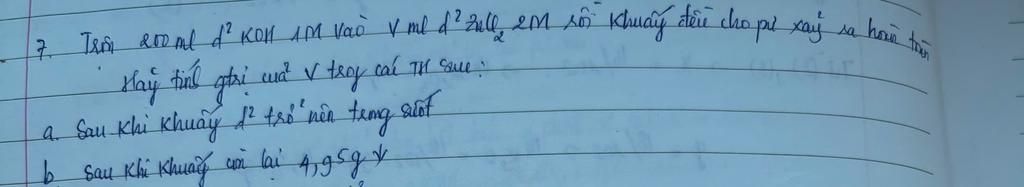 7. Trộn 200 ml d² KOH 1M vào V ml d² ZnCl₂ 2M rồi khuấy đều cho pư xảy ra hoàn toàn
Hãy tính gtrị của V trog các TH sau:
a. Sau khi khuấy d² trở nên trong suốt
b Sau khi khuấy còn lại 4,95g ↓